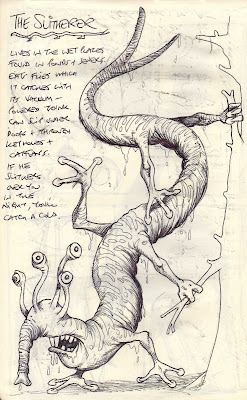 THE SLITHERER
LIVES IN THE WET PLACES
FOUND IN PONDS + SEWERS.
EATS FLIES WHICH
IT CATCHES WITH
ITS VACUUM -
POWERED TRUNK.
CAN SLIP UNDER
DOORS + THROUGH
KEYHOLES +
CATFLAPS.
IF HE
SLITHERS
OVER YOU
IN THE
NIGHT, YOU'LL
CATCH A COLD.